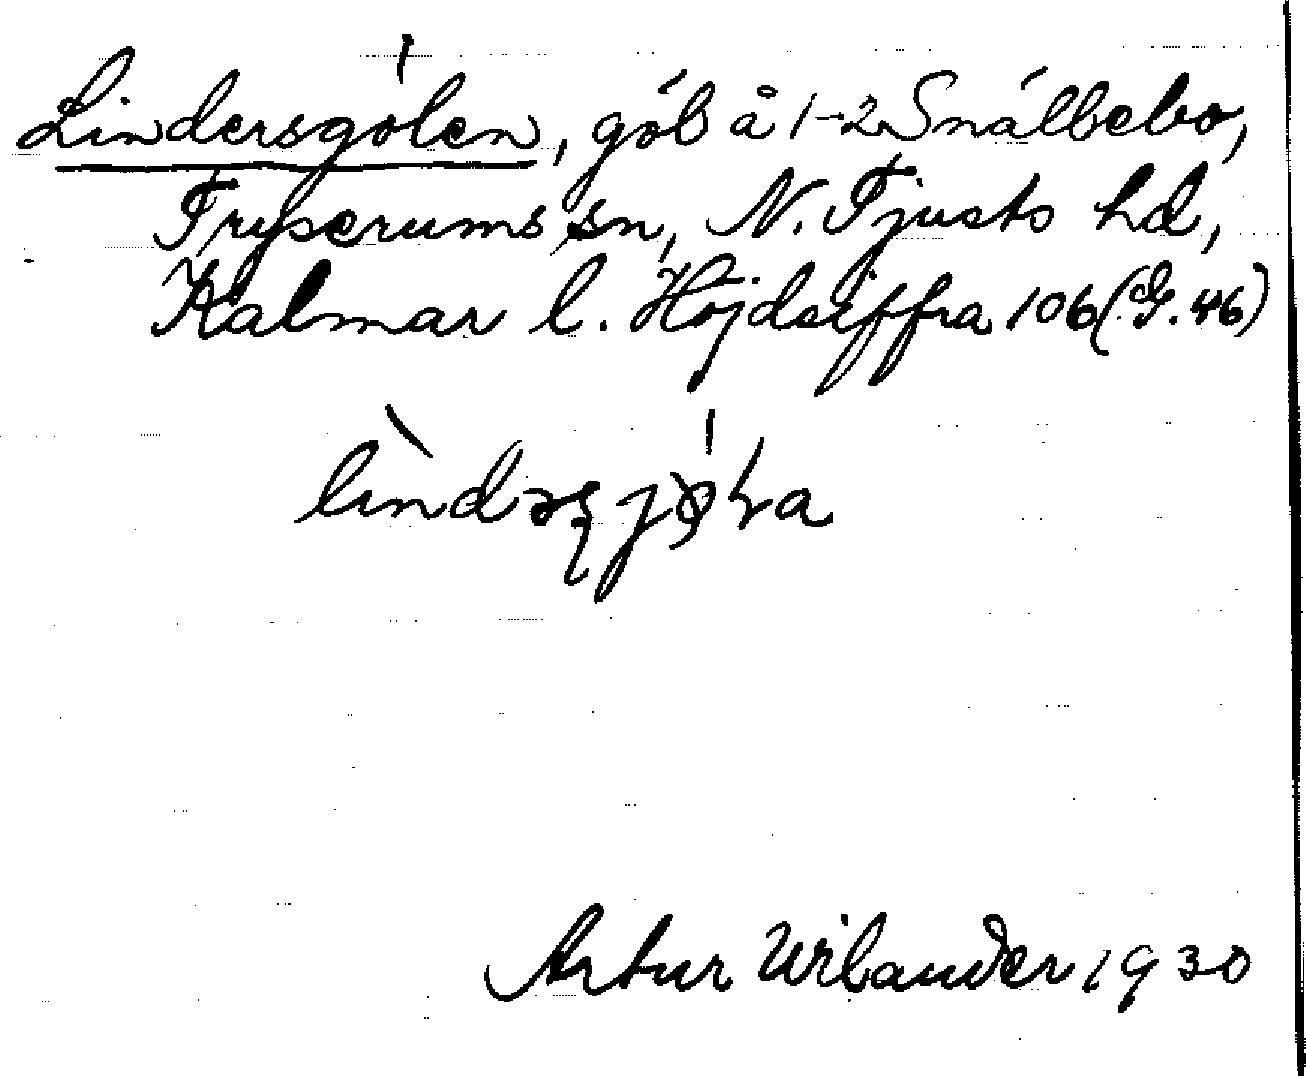 Lindersgólen, gól å 1-2 Smálbebo,
Tryserums sn, N. Tjusts hd,
Kalmar l. Höjdsiffra 106 (G. 46)
Artur Wilander 1930